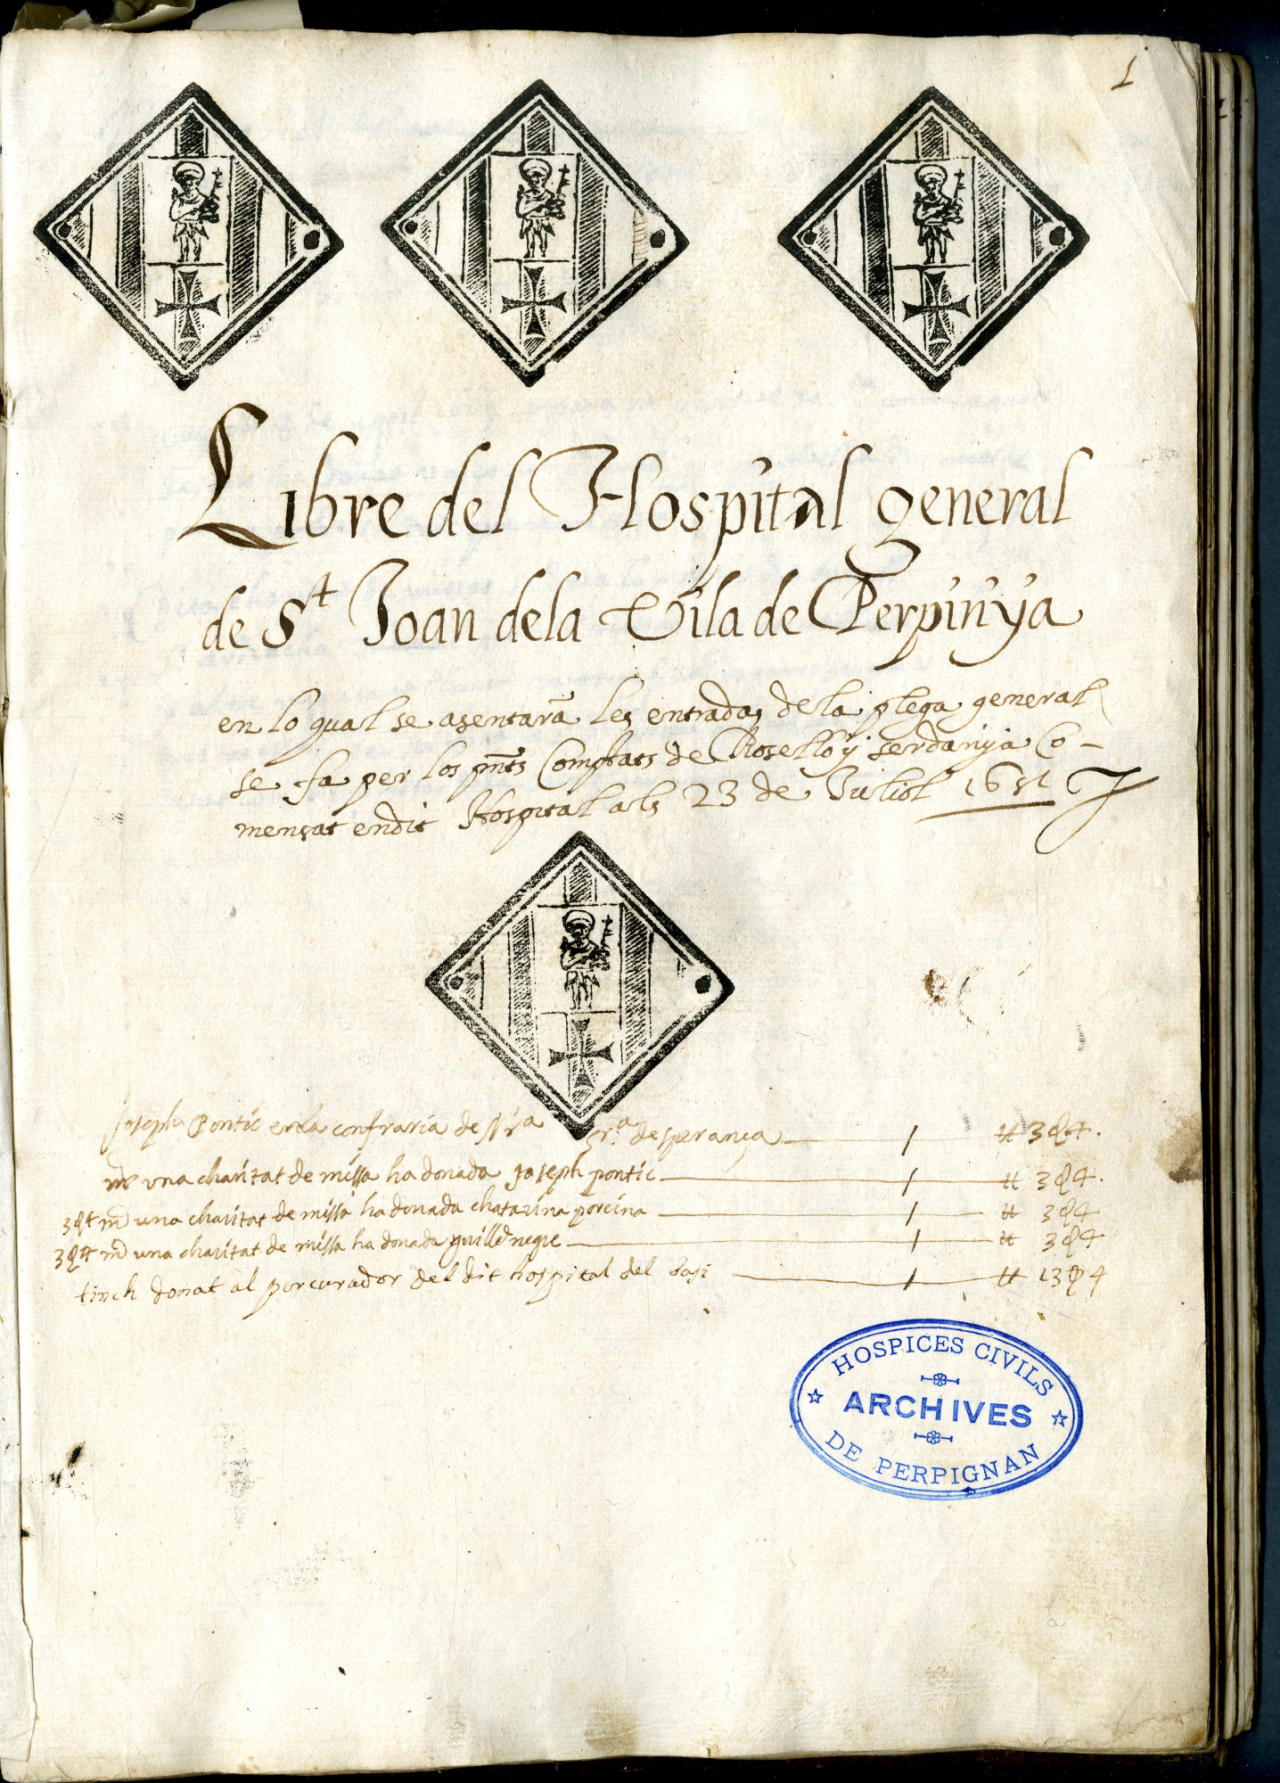 1
Libre del Hospital general
de St Joan dela Vila de Perpinya
en lo qual se asentarã les entradas de la plega general
se fa per los pnts Comptats de Rosello y serdanya Co-
mensat endit Hospital als 23 de Juliol 1651
Joseph Pontic en la confraria de Nra Sra de sperança — 1 — ₶ 3 ꝭ 4.
una charitat de missa ha donada Joseph pontic — 1 — ₶ 3 ꝭ 4.
3 ꝭ 4 md una charitat de missa ha donada chatarina porcina — 1 — ₶ 3 ꝭ 4
3 ꝭ 4 md una charitat de missa ha donada guillẽ negre — 1 — ₶ 3 ꝭ 4
tinch donat al porcurador del dit hospital del basi — 1 — ₶ 13 ꝭ 4
HOSPICES CIVILS
ARCHIVES
DE PERPIGNAN